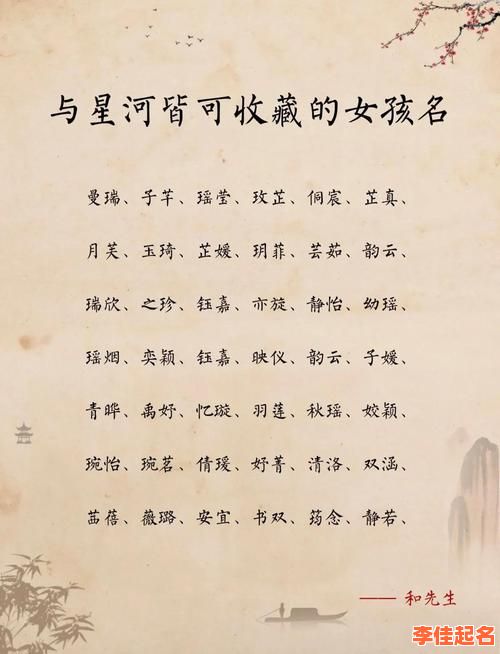 与星河皆可收藏的女孩名
曼瑞、子芊、瑶莹、玫芷、侗宸、芷真、
月芙、玉琦、芷媛、玥菲、芸茹、韵云、
瑞欣、之珍、钰嘉、亦旋、静怡、幼瑶、
瑶烟、奕颖、钰嘉、映仪、韵云、子媛、
青晔、禹妤、忆璇、羽莲、秋瑶、姣颖、
琬怡、琬茗、倩瑗、妤菁、清洛、双涵、
茁蓓、薇璐、安宜、书双、筠念、静若、
—— 和先生
李佳起名